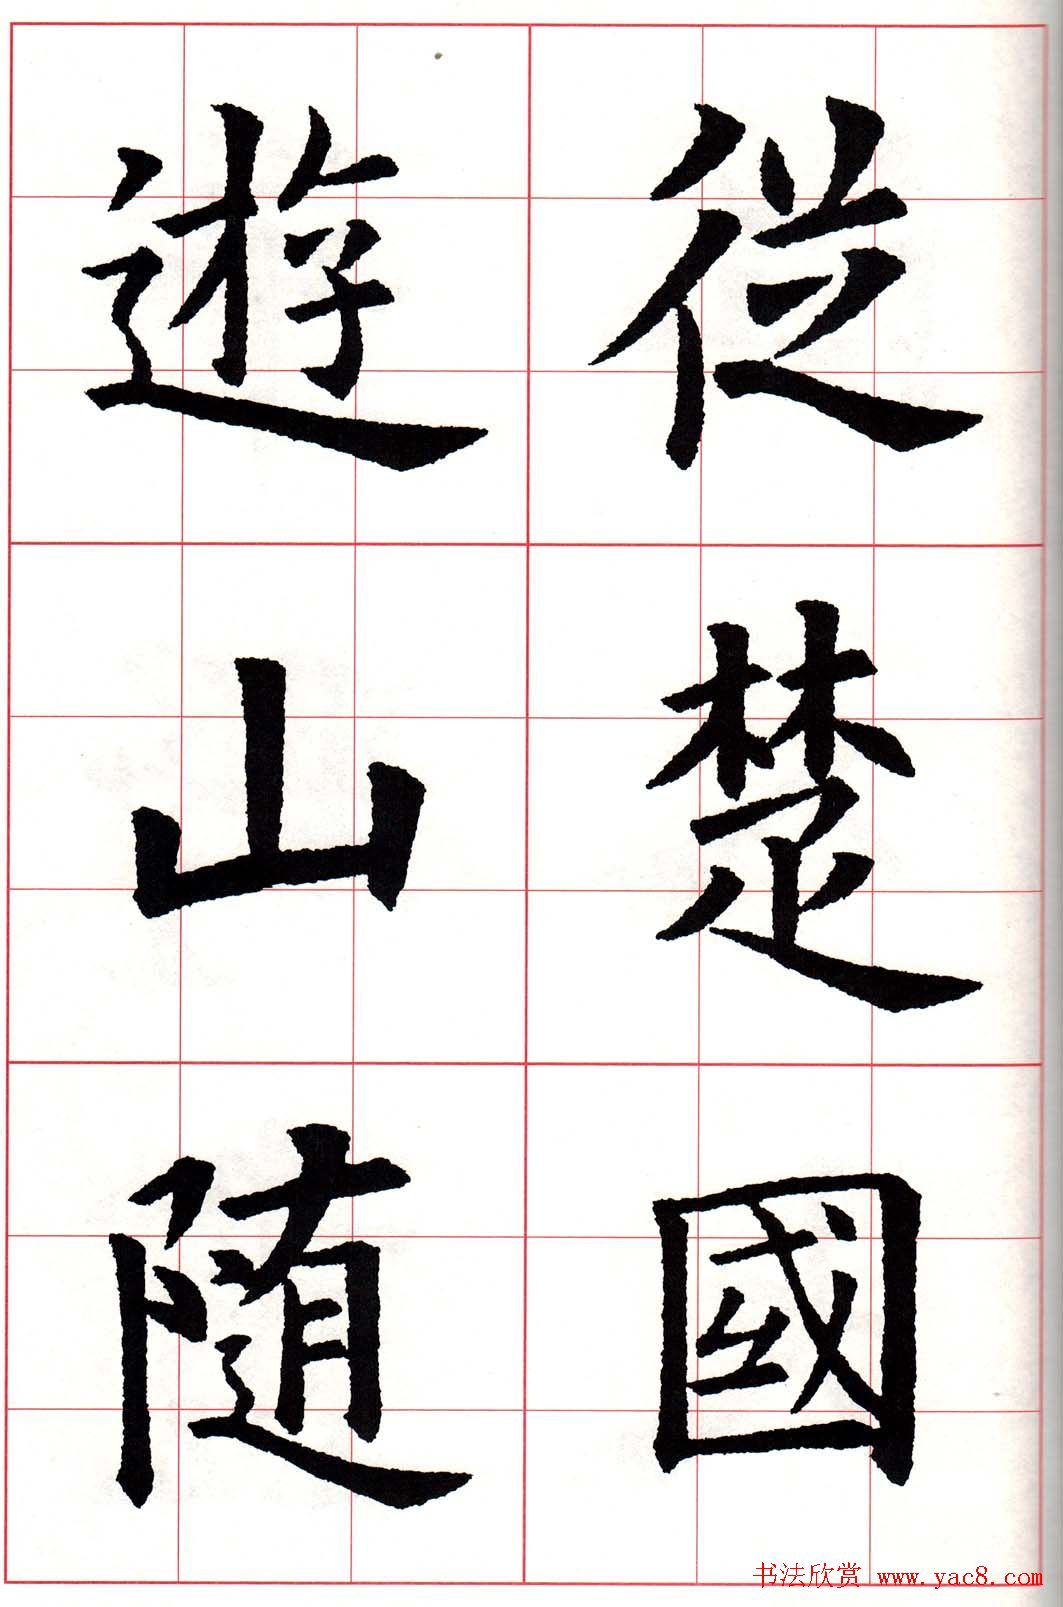 從楚國
遊山随
书法欣赏 www.yac8.com